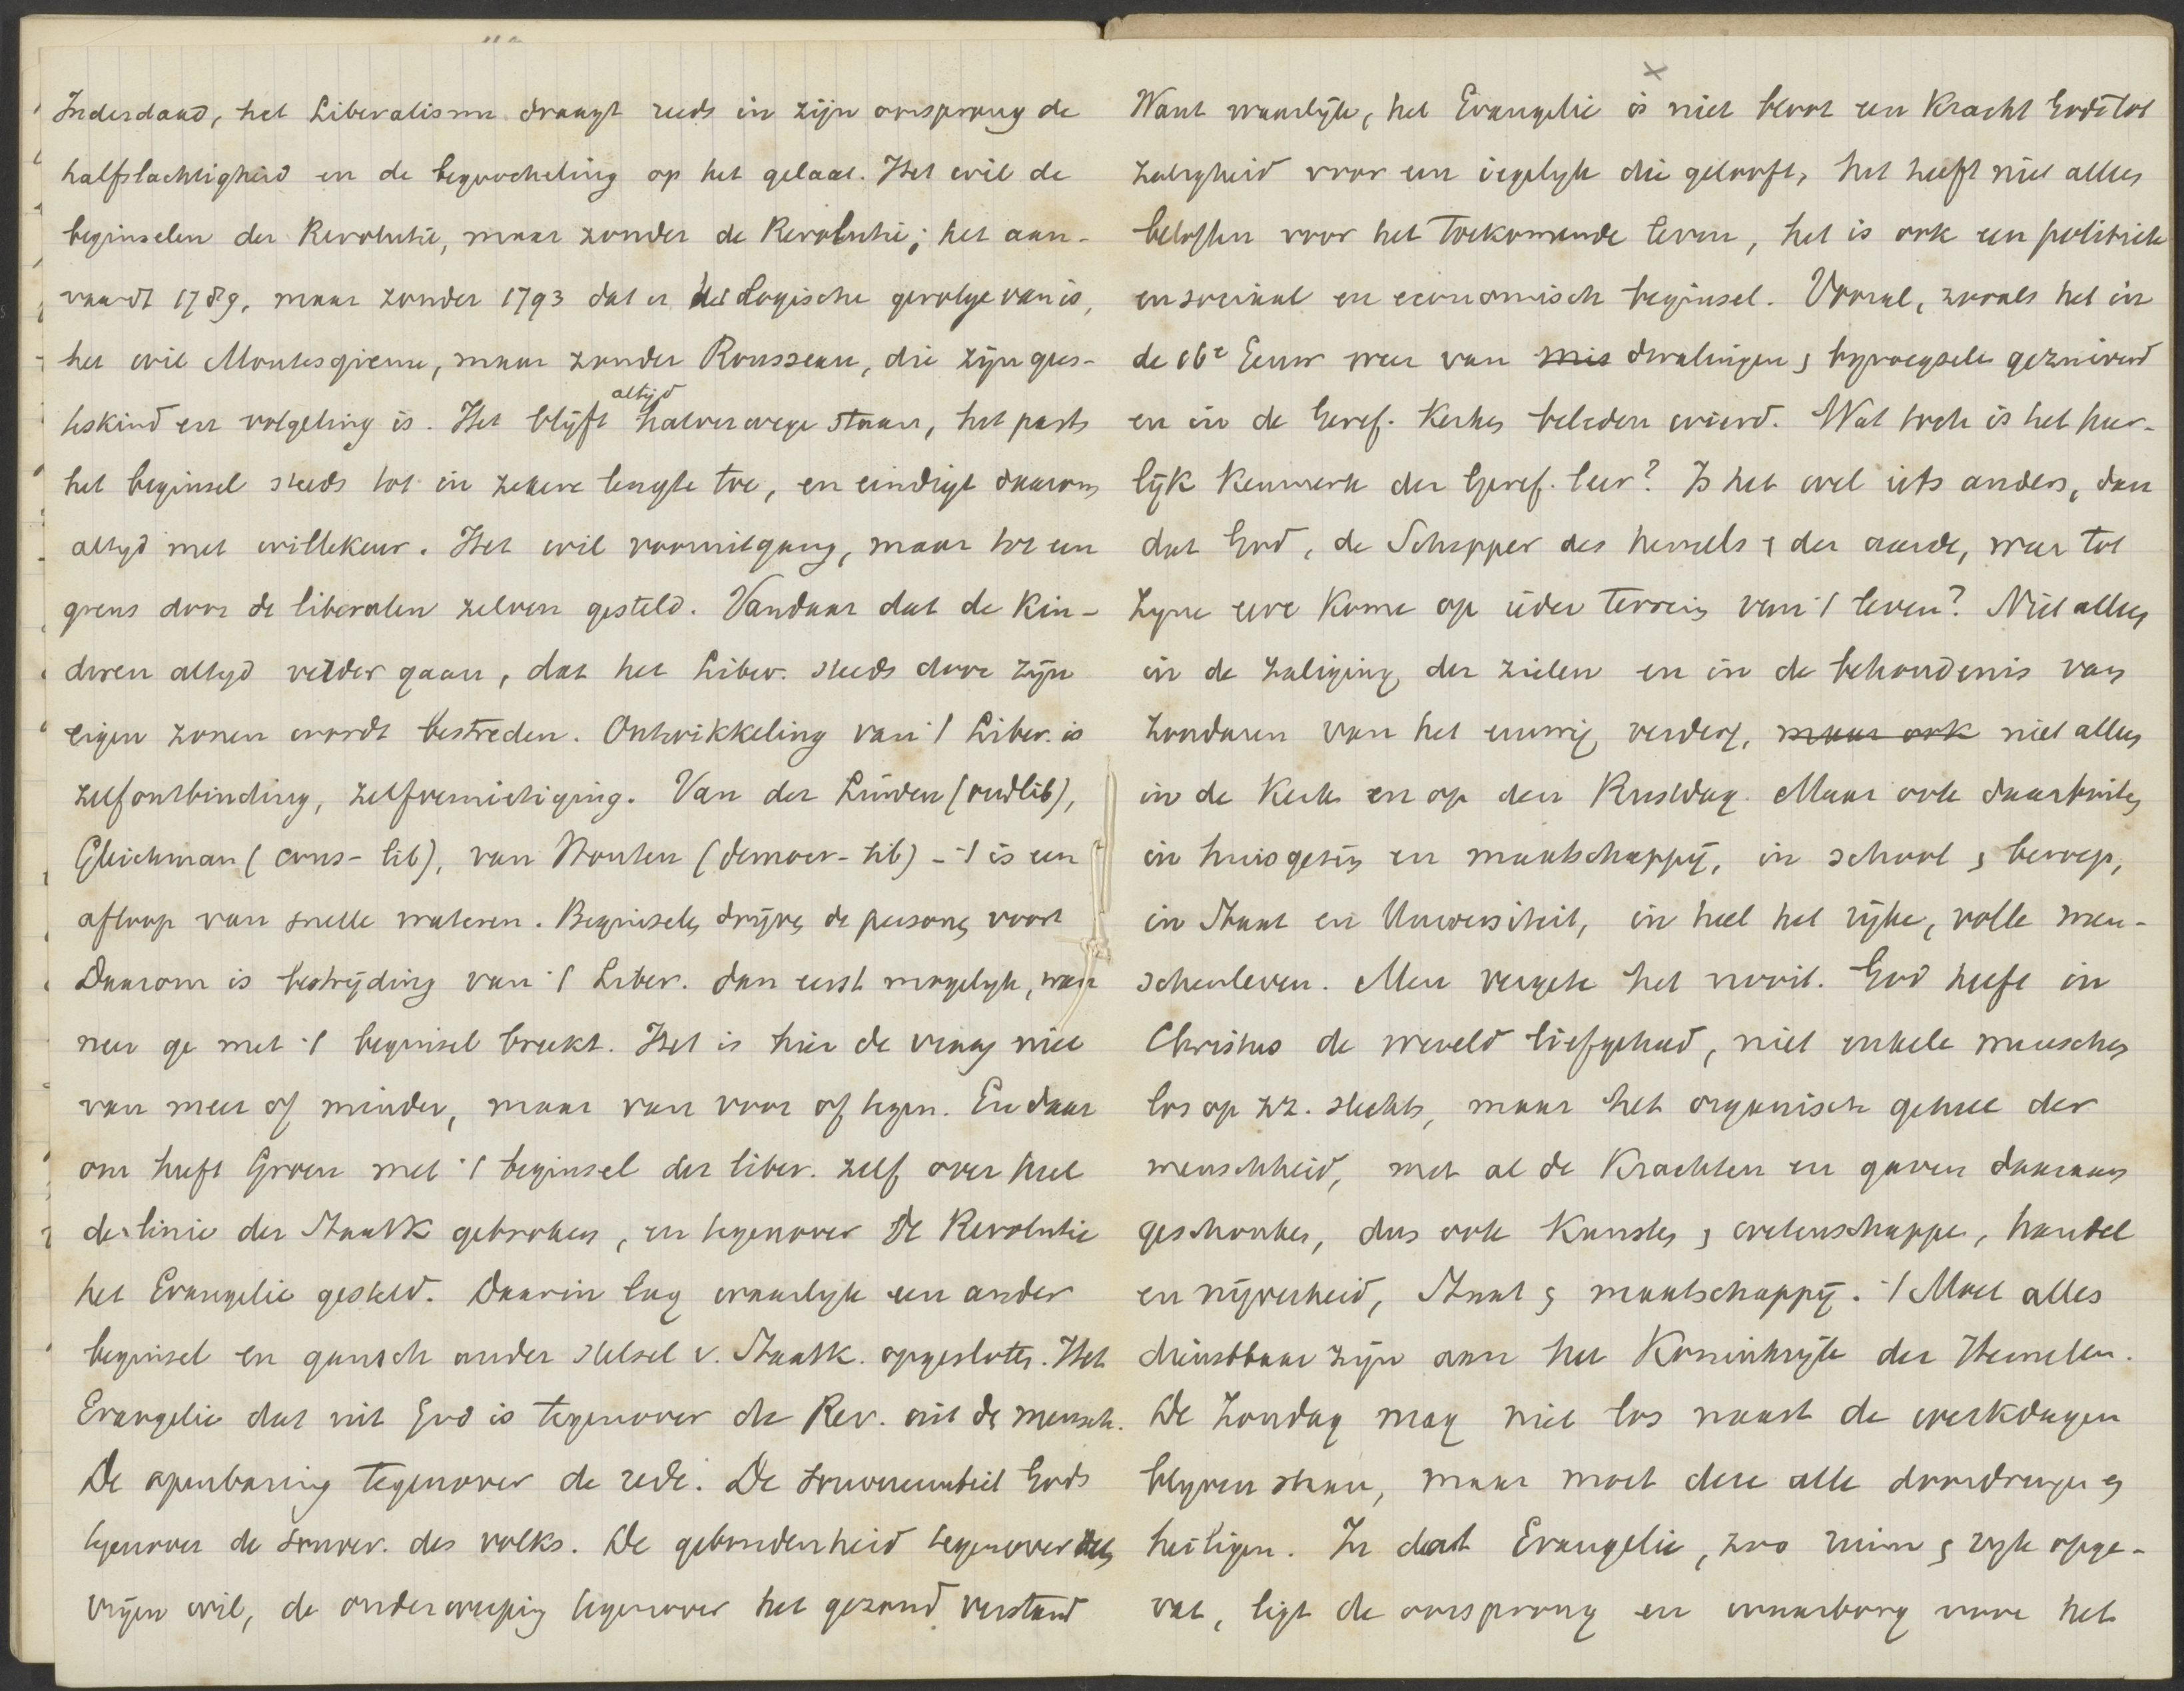 Inderdaad, het Liberalisme draagt reeds in zijn oorsprong de
halfslachtigheid en de begoocheling op het gelaat. Het wil de
beginselen der Revolutie, maar zonder de Revolutie; het aan-
vaardt 1789, maar zonder 1793 dat er het Logische gevolge van is,
het wil Montesqieue, maar zonder Rousseau, die zijn gees-
teskind en volgeling is. Het blijft altijd halverwege staan, het past
het beginsel steeds tot in zekere lengte toe, en eindigt daarom
altyd met willekeur. Het wil vooruitgang, maar tot een
grens door de liberalen zelven gesteld. Vandaar dat de Kin-
deren altyd verder gaan, dat het Liber. steeds door zijn
eigen zonen wordt bestreden. Ontwikkeling van 't Liber. is
zelfontbinding, zelfvernietiging. Van der Linden (oudlib),
Gleichman (cons-lib), van Houten (democr-lib) - 't is een
afloop van snelle wateren. Beginselen drijven de personen voort
Daarom is bestrijding van 't Liber. dan eerst mogelyk, wan
neer ge met 't beginsel breekt. Het is hier de vraag niet
van meer of minder, maar van voor of tegen. En daar
om heeft Groen met 't beginsel der liber. zelf over heel
de linie der Staatk gebroken, en tegenover de Revolutie
het Evangelie gesteld. Daarin lag waarlyk een ander
beginsel en gansch ander stelsel v. Staatk. opgesloten. Het
Evangelie dat uit God is tegenover de Rev. uit de mensch.
De openbaring tegenover de rede. De souvereiniteit Gods
tegenover de souver. des volks. De gebondenheid tegenover den
vrijen wil, de onderwerping tegenover het gezond verstand
x
Want waarlijk, het Evangelie is niet bloot een Kracht Gods tot
zaligheid voor een iegelyk die gelooft, het heeft niet alleen
beloften voor het toekomende leven, het is ook een politiek
en sociaal en economisch beginsel. Vooral, zooals het in
de 16e Eeuw weer van mis dwalingen & byvoegselen gezuiverd
en in de Geref. Kerken beleden wierd. Wat toch is het heer-
lijk Kenmerk der Geref. leer? Is het wel iets anders, dan
dat God, de Schepper des hemels & der aarde, weer tot
Zyne eere kome op ieder terrein van 't leven? Niet alleen
in de zaliging der zielen en in de behoudenis van
zondaren van het eeuwig verderf, maar ook niet alleen
in de Kerk en op den Rustdag. Maar ook daarbuiten
in huisgezin en maatschappij, in school & beroep,
in Staat en Universiteit, in heel het rijke, volle men-
schenleven. Men vergete het nooit. God heeft in
Christus de wereld liefgehad, niet enkele menschen
los op zz. slechts, maar het organisch geheel der
menschheid, met al de Krachten en gaven daaraan
geschonken, dus ook Kunsten & wetenschappen, handel
en nijverheid, Staat & maatschappij. 't Moet alles
dienstbaar zijn aan het Koninkrijk der Hemelen.
De Zondag mag niet los naast de werkdagen
blyven staan, maar moet deze alle doordringen en
heiligen. In dat Evangelie, zoo ruim & ryk opge-
vat, ligt de oorsprong en waarborg voor het